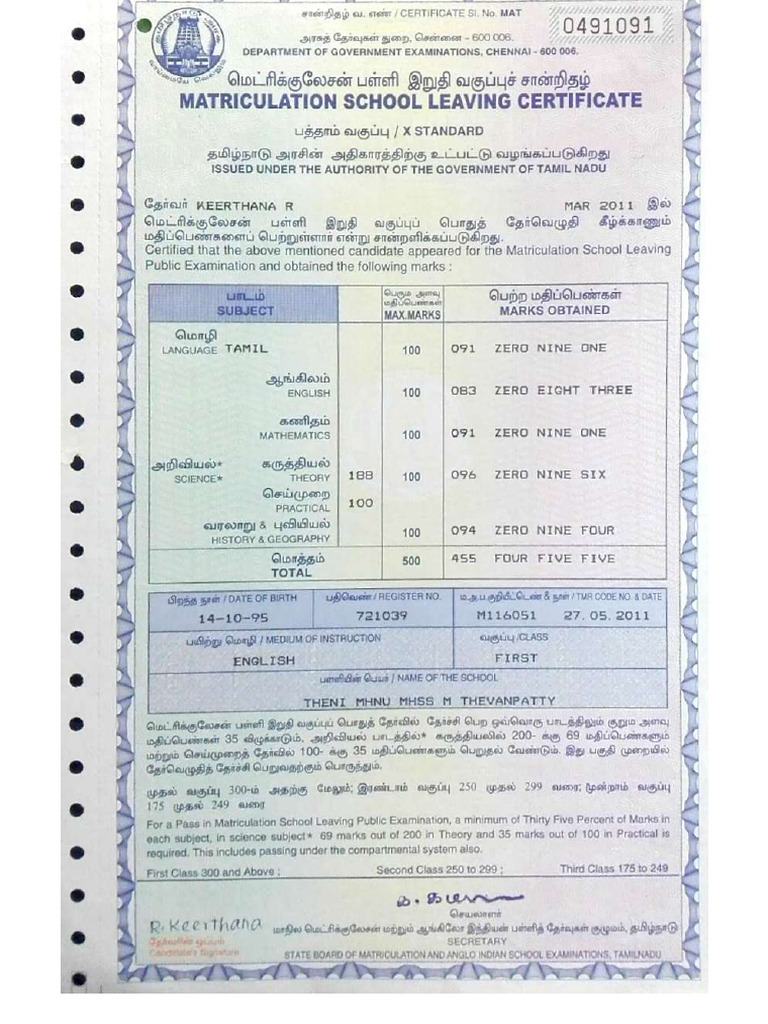 சான்றிதழ் வ. எண் / CERTIFICATE Sl. No. MAT 0491091
அரசுத் தேர்வுகள் துறை, சென்னை - 600 006.
DEPARTMENT OF GOVERNMENT EXAMINATIONS, CHENNAI - 600 006.
மெட்ரிக்குலேசன் பள்ளி இறுதி வகுப்புச் சான்றிதழ்
MATRICULATION SCHOOL LEAVING CERTIFICATE
பத்தாம் வகுப்பு / X STANDARD
தமிழ்நாடு அரசின் அதிகாரத்திற்கு உட்பட்டு வழங்கப்படுகிறது
ISSUED UNDER THE AUTHORITY OF THE GOVERNMENT OF TAMIL NADU
தேர்வர் KEERTHANA R MAR 2011 இல்
மெட்ரிக்குலேசன் பள்ளி இறுதி வகுப்புப் பொதுத் தேர்வெழுதி கீழ்க்காணும்
மதிப்பெண்களைப் பெற்றுள்ளார் என்று சான்றளிக்கப்படுகிறது.
Certified that the above mentioned candidate appeared for the Matriculation School Leaving
Public Examination and obtained the following marks :
பாடம் பெரும அளவு மதிப்பெண்கள் பெற்ற மதிப்பெண்கள்
SUBJECT MAX.MARKS MARKS OBTAINED
மொழி
LANGUAGE TAMIL 100 091 ZERO NINE ONE
ஆங்கிலம்
ENGLISH 100 083 ZERO EIGHT THREE
கணிதம்
MATHEMATICS 100 091 ZERO NINE ONE
அறிவியல்* கருத்தியல்
SCIENCE* THEORY 188 100 096 ZERO NINE SIX
செய்முறை
PRACTICAL 100
வரலாறு & புவியியல்
HISTORY & GEOGRAPHY 100 094 ZERO NINE FOUR
மொத்தம்
TOTAL 500 455 FOUR FIVE FIVE
பிறந்த நாள் / DATE OF BIRTH பதிவெண் / REGISTER NO. ம.அ.ப.குறியீட்டெண் & நாள் / TMR CODE NO. & DATE
14-10-95 721039 M116051 27.05.2011
பயிற்று மொழி / MEDIUM OF INSTRUCTION வகுப்பு /CLASS
ENGLISH FIRST
பள்ளியின் பெயர் / NAME OF THE SCHOOL
THENI MHNU MHSS M THEVANPATTY
மெட்ரிக்குலேசன் பள்ளி இறுதி வகுப்புப் பொதுத் தேர்வில் தேர்ச்சி பெற ஒவ்வொரு பாடத்திலும் குறும அளவு
மதிப்பெண்கள் 35 விழுக்காடும், அறிவியல் பாடத்தில்* கருத்தியலில் 200- க்கு 69 மதிப்பெண்களும்
மற்றும் செய்முறைத் தேர்வில் 100- க்கு 35 மதிப்பெண்களும் பெறுதல் வேண்டும். இது பகுதி முறையில்
தேர்வெழுதித் தேர்ச்சி பெறுவதற்கும் பொருந்தும்.
முதல் வகுப்பு 300-ம் அதற்கு மேலும்; இரண்டாம் வகுப்பு 250 முதல் 299 வரை; மூன்றாம் வகுப்பு
175 முதல் 249 வரை
For a Pass in Matriculation School Leaving Public Examination, a minimum of Thirty Five Percent of Marks in
each subject, in science subject* 69 marks out of 200 in Theory and 35 marks out of 100 in Practical is
required. This includes passing under the compartmental system also.
First Class 300 and Above ; Second Class 250 to 299 ; Third Class 175 to 249
செயலாளர்
R. Keerthana மாநில மெட்ரிக்குலேசன் மற்றும் ஆங்கிலோ இந்தியன் பள்ளித் தேர்வுகள் குழுமம், தமிழ்நாடு
தேர்வரின் ஒப்பம் SECRETARY
Candidate's Signature STATE BOARD OF MATRICULATION AND ANGLO INDIAN SCHOOL EXAMINATIONS, TAMILNADU